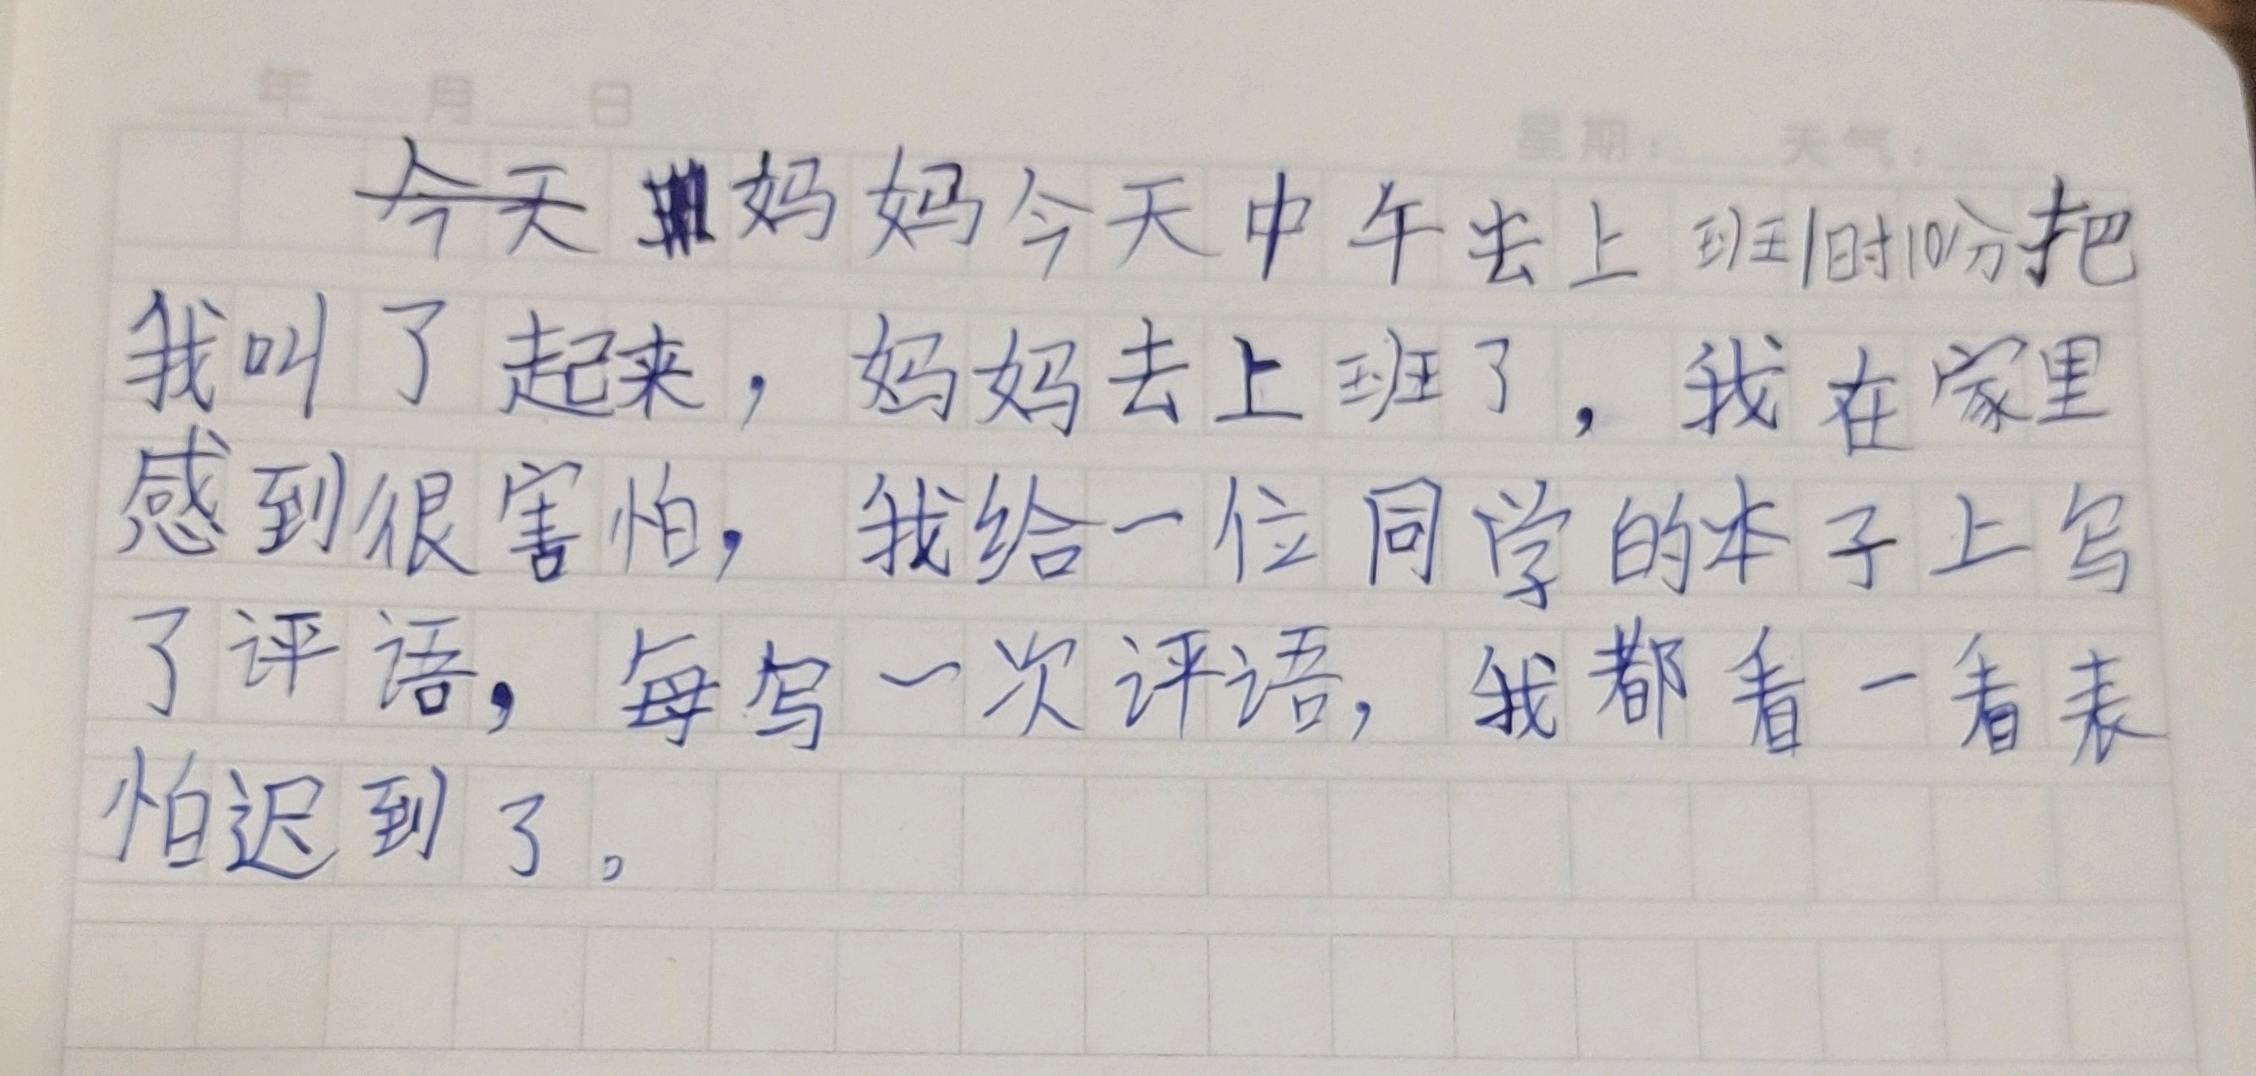 年 月 日
星期： 天气：
今天 妈妈今天中午去上班1时10分把
我叫了起来，妈妈去上班了，我在家里
感到很害怕，我给一位同学的本子上写
了评语，每写一次评语，我都看一看表
怕迟到了。